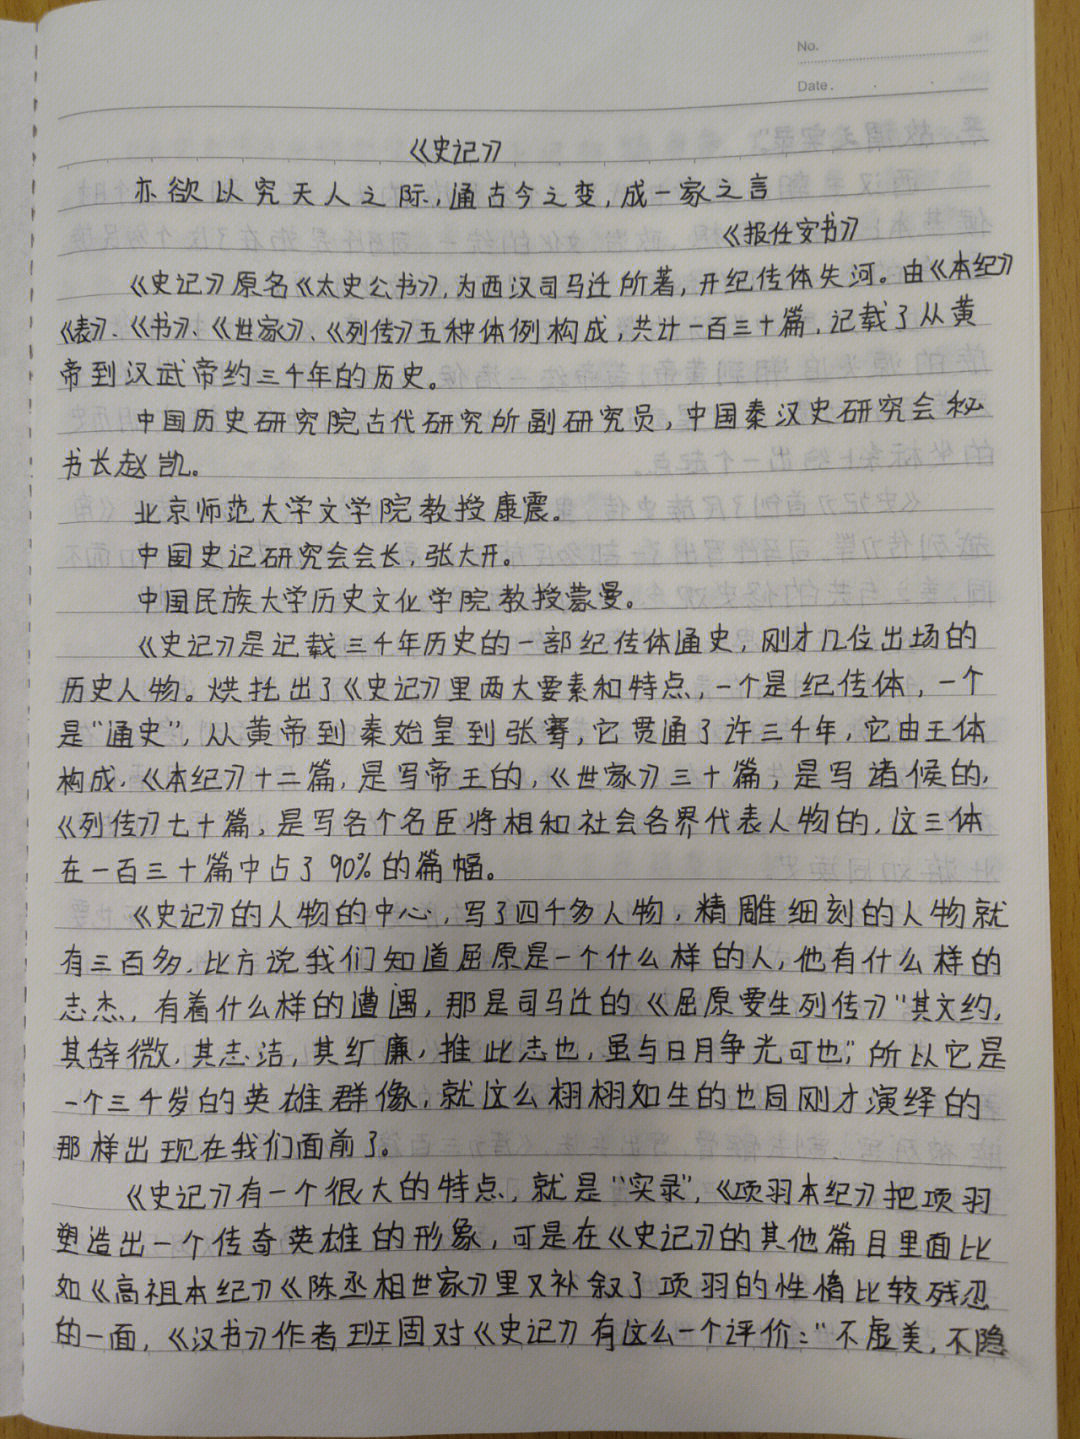 No.
Date.
《史记》
亦欲以究天人之际,通古今之变,成一家之言
《报任安书》
《史记》原名《太史公书》,为西汉司马迁所著,开纪传体失河。由《本纪》
《表》、《书》、《世家》、《列传》五种体例构成,共计一百三十篇,记载了从黄
帝到汉武帝约三千年的历史。
中国历史研究院古代研究所副研究员,中国秦汉史研究会秘
书长赵凯。
北京师范大学文学院教授康震。
中国史记研究会会长,张大开。
中国民族大学历史文化学院教授蒙曼。
《史记》是记载三千年历史的一部纪传体通史,刚才几位出场的
历史人物。烘托出了《史记》里两大要素和特点,一个是纪传体,一个
是"通史",从黄帝到秦始皇到张骞,它贯通了许三千年,它由王体
构成,《本纪》十二篇,是写帝王的,《世家》三十篇,是写诸候的,
《列传》七十篇,是写各个名臣将相和社会各界代表人物的,这三体
在一百三十篇中占了90%的篇幅。
《史记》的人物的中心,写了四千多人物,精雕细刻的人物就
有三百多,比方说我们知道屈原是一个什么样的人,他有什么样的
志杰,有着什么样的遭遇,那是司马迁的《屈原要生列传》"其文约,
其辞微,其志洁,其红廉,推此志也,虽与日月争光可也;"所以它是
一个三千岁的英雄群像,就这么栩栩如生的也同刚才演绎的
那样出现在我们面前了。
《史记》有一个很大的特点,就是"实录",《项羽本纪》把项羽
塑造出一个传奇英雄的形象,可是在《史记》的其他篇目里面比
如《高祖本纪》《陈丞相世家》里又补叙了项羽的性情比较残忍
的一面,《汉书》作者班固对《史记》有这么一个评价:"不虚美,不隐